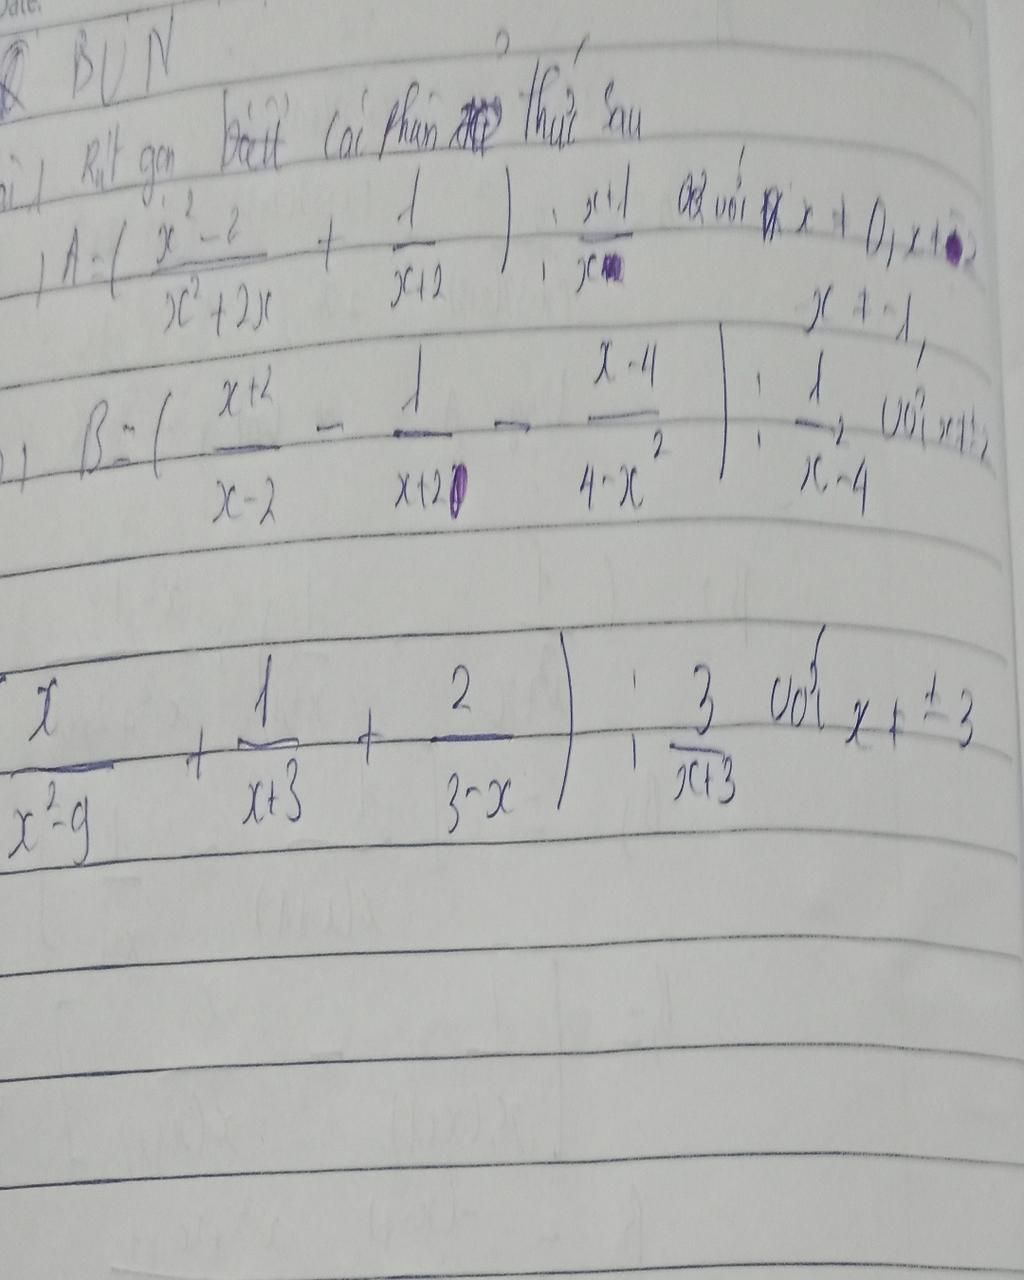 Date.
BÙN
Rút gọn các phân thức sau
A = ( x² - 2 / x² + 2x + 1 / x+2 ) : x+1 / x với x ≠ 0, x ≠
x ≠ -1,
B = ( x+2 / x-2 - 1 / x+2 - x-4 / 4-x² ) : 1 / x²-4 với x ≠ ±2
x / x²-9 + 1 / x+3 + 2 / 3-x ) : 3 / x+3 với x ≠ ±3